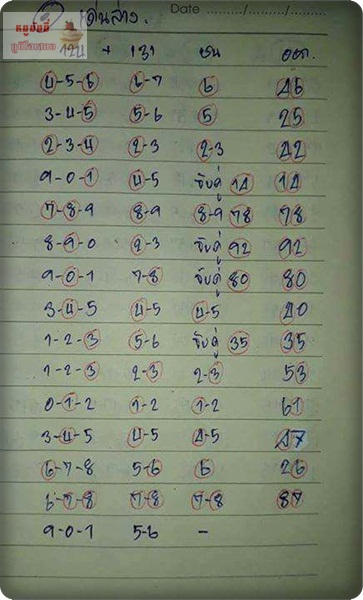 Date ........./........./.........
เด่นล่าง.
12น + 131 ชน ออก.
4-5-6 6-7 6 46
3-4-5 5-6 5 25
2-3-4 2-3 2-3 42
9-0-1 4-5 จับคู่ 14 14
7-8-9 8-9 8-9 78 78
8-9-0 2-3 จับคู่ 92 92
9-0-1 7-8 จับคู่ 80 80
3-4-5 4-5 4-5 40
1-2-3 5-6 จับคู่ 35 35
1-2-3 2-3 2-3 53
0-1-2 1-2 1-2 61
3-4-5 4-5 4-5 47
6-7-8 5-6 6 26
6-7-8 7-8 7-8 87
9-0-1 5-6 -